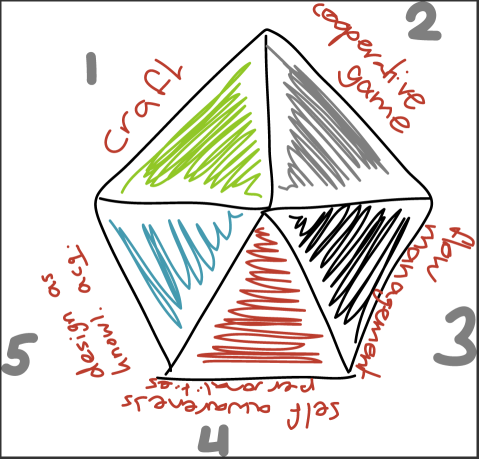 1
craft
2
cooperative
game
3
flow
management
4
self awareness
personalities
5
design as
knowl. acq.